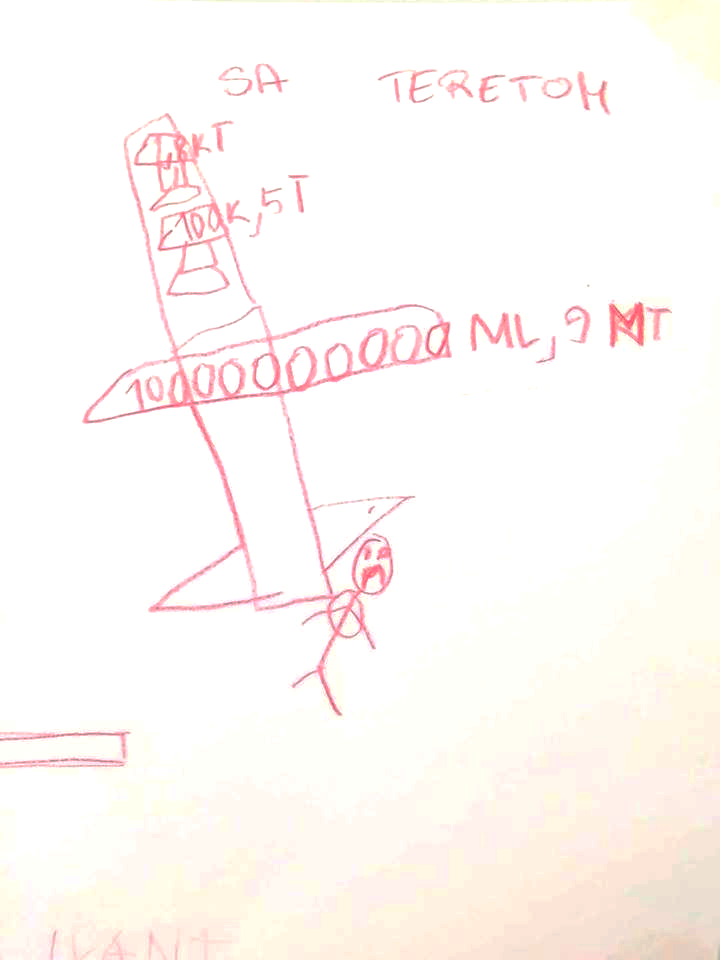 SA TERETOM
1,8KT
100K,5T
10000000000 ML,9 MT